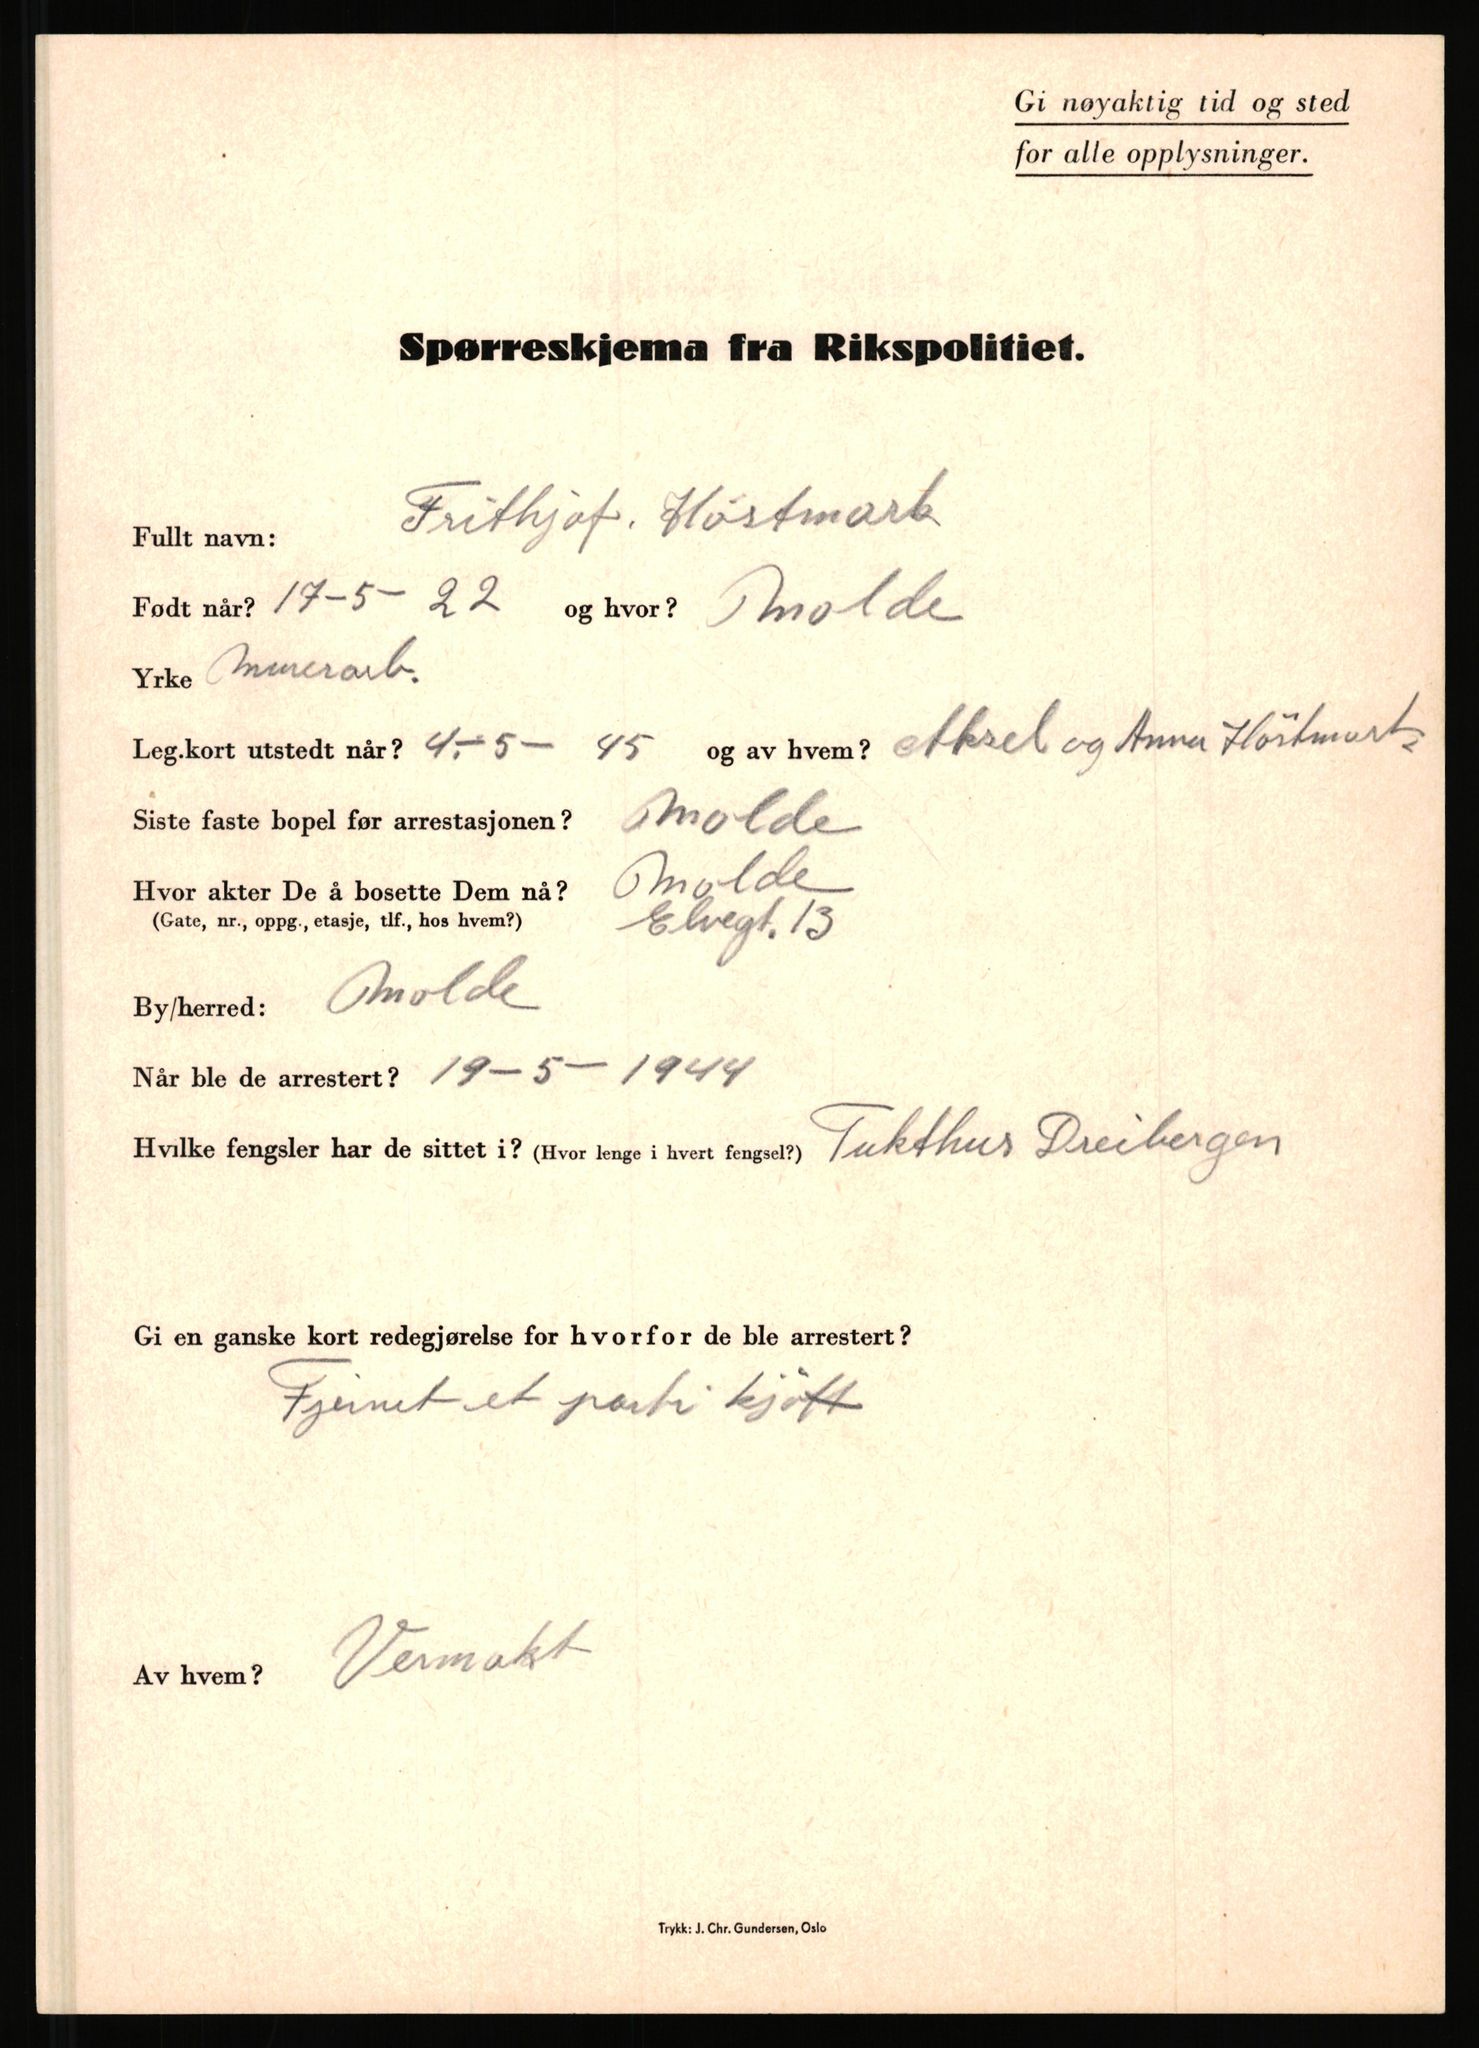 Gi nøyaktig tid og sted
for alle opplysninger.
Spørreskjema fra Rikspolitiet.
Fullt navn: Frithjof. Höstmark
Født når? 17-5-22 og hvor? Molde
Yrke Murerarb.
Leg.kort utstedt når? 4-5-45 og av hvem? Aksel og Anna Höstmark
Siste faste bopel før arrestasjonen? Molde
Hvor akter De å bosette Dem nå? Molde
(Gate, nr., oppg., etasje, tlf., hos hvem?) Elvegt. 13
By/herred: Molde
Når ble de arrestert? 19-5-1944
Hvilke fengsler har de sittet i? (Hvor lenge i hvert fengsel?) Tukthus Dreibergen
Gi en ganske kort redegjørelse for hvorfor de ble arrestert?
Fjernet et parti kjött
Av hvem? Vermakt
Trykk: J. Chr. Gundersen, Oslo